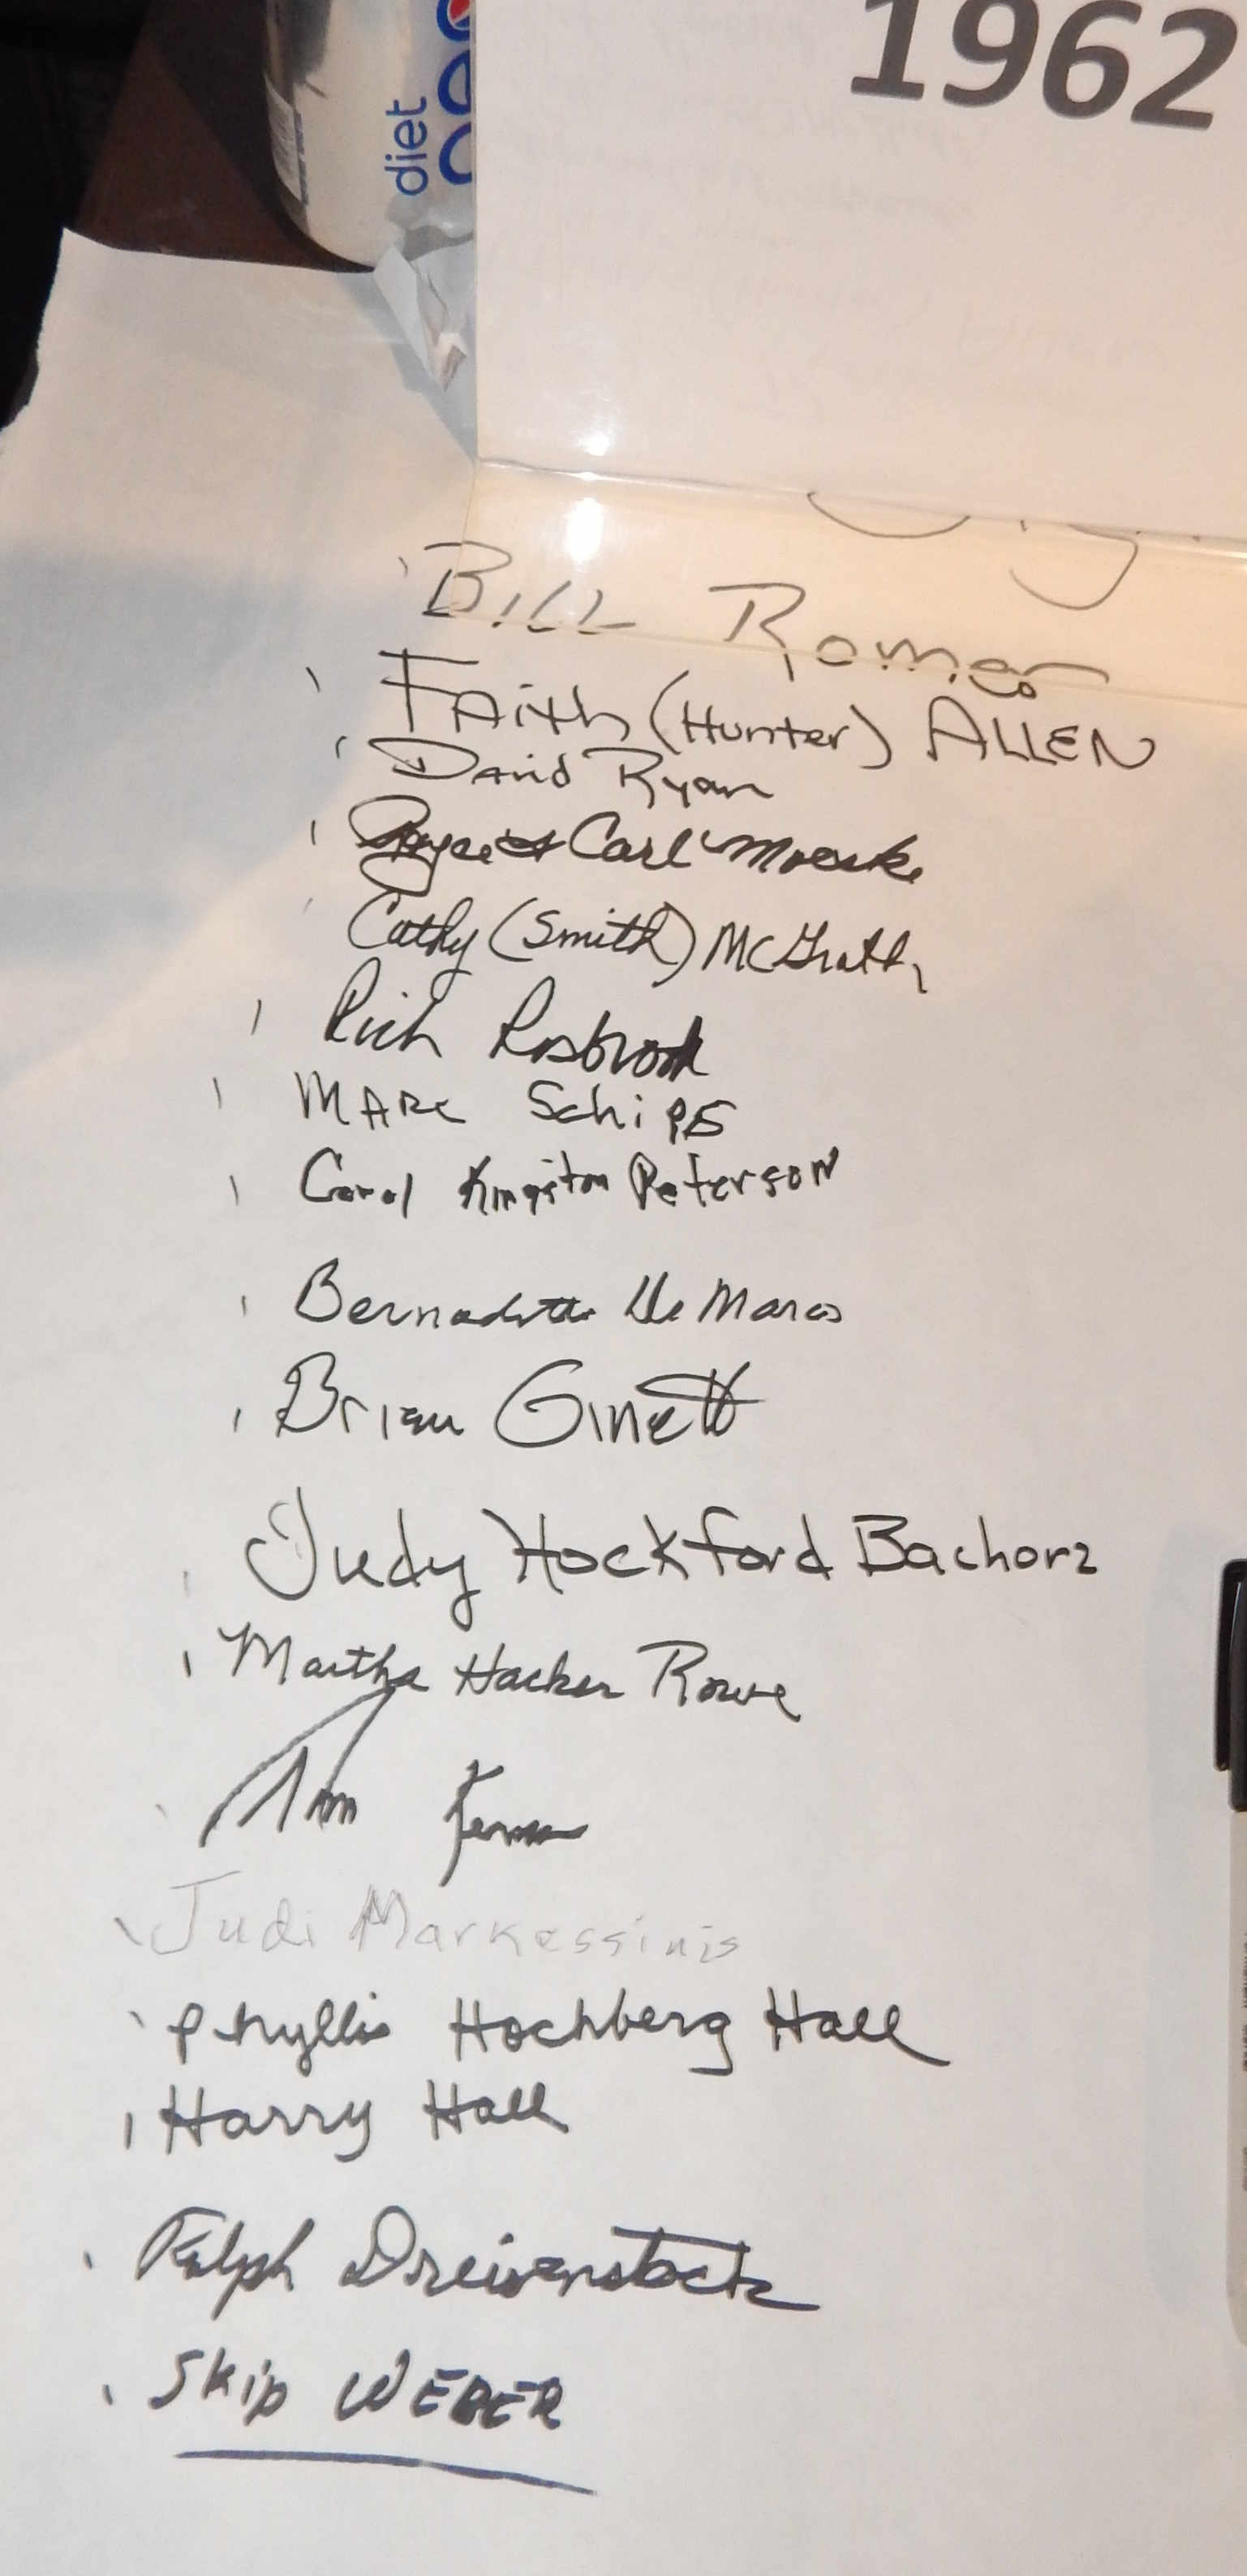 1962
diet
Bill Romeo
FAith (Hunter) ALLEN
David Ryan
Joyce & Carl Moeske
Cathy (Smith) McGrath
Rich Rosbrook
MARC Schips
Carol Kingston Peterson
Bernadette DeMarco
Brian Ginett
Judy Hockford Bachorz
Martha Hacker Rowe
Judi Markessinis
Phyllis Hochberg Hall
Harry Hall
Ralph
Skip WEBER